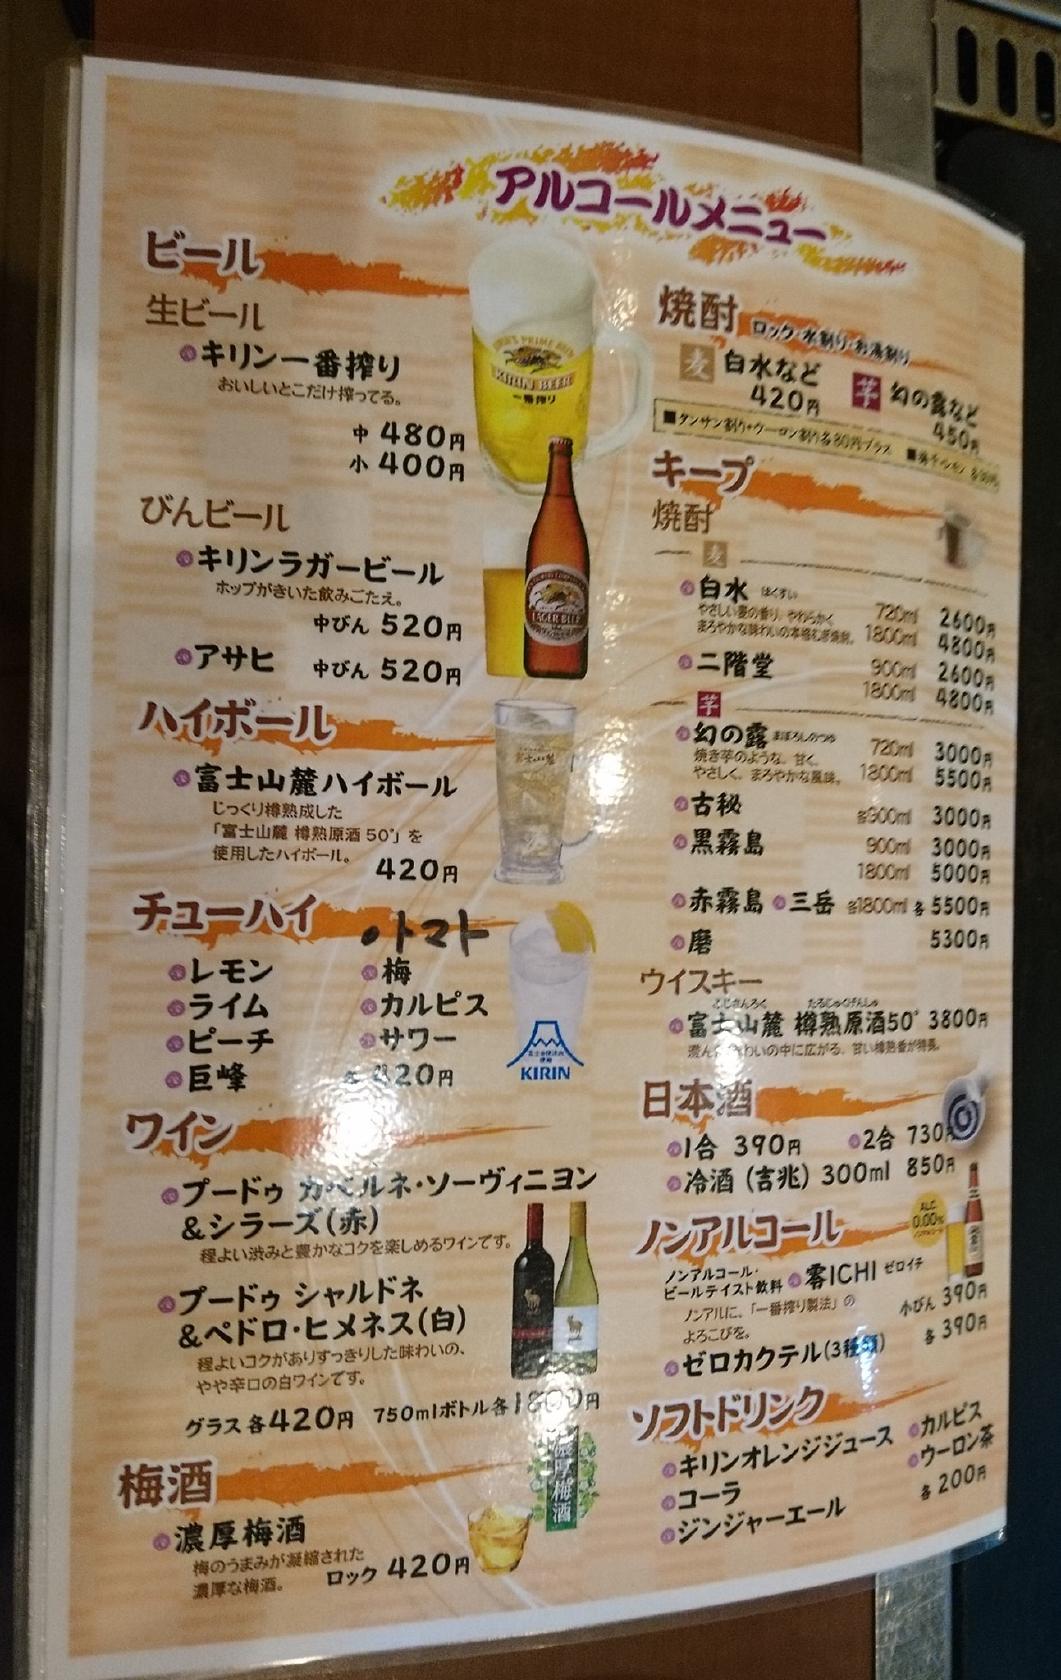 アルコールメニュー
ビール
生ビール
キリン一番搾り
おいしいとこだけ搾ってる。
中 480円
小 400円
びんビール
キリンラガービール
ホップがきいた飲みごたえ。
中びん 520円
アサヒ 中びん 520円
ハイボール
富士山麓ハイボール
じっくり樽熟成した
「富士山麓 樽熟原酒 50°」を
使用したハイボール。
420円
チューハイ
・トマト
レモン 梅
ライム カルピス
ピーチ サワー
巨峰 各420円
KIRIN
ワイン
プードゥ カベルネ・ソーヴィニヨン
&シラーズ(赤)
程よい渋みと豊かなコクを楽しめるワインです。
プードゥ シャルドネ
&ペドロ・ヒメネス(白)
程よいコクがありすっきりした味わいの、
やや辛口の白ワインです。
グラス 各420円 750mlボトル各1800円
梅酒
濃厚梅酒
梅のうまみが凝縮された
濃厚な梅酒。
ロック 420円
濃厚梅酒
KIRIN BEER
一番搾り
LAGER BEER
焼酎 ロック・水割り・お湯割り
麦 白水など
420円
芋 幻の露など
450円
■タンサン割り・ウーロン割り各80円プラス
キープ
焼酎
麦
白水 はくすい
やさしい麦の香り、やわらかく
まろやかな味わいの本格むぎ焼酎。
720ml 2600円
1800ml 4800円
二階堂 900ml 2600円
1800ml 4800円
芋
幻の露 まぼろしのつゆ 720ml 3000円
焼き芋のような、甘く、
やさしく、まろやかな風味。 1800ml 5500円
古秘 各900ml 3000円
黒霧島 900ml 3000円
1800ml 5000円
赤霧島 三岳 各1800ml 各5500円
磨 5300円
ウイスキー
ふじさんろく たるじゅくげんしゅ
富士山麓 樽熟原酒50° 3800円
澄んだ味わいの中に広がる、甘い樽熟香が特長。
日本酒
1合 390円 2合 730円
冷酒 (吉兆) 300ml 850円
ノンアルコール
ALC.
0.00%
ノンアルコール・
ビールテイスト飲料 零ICHI ゼロイチ
ノンアルに、「一番搾り製法」の
よろこびを。
小びん 390円
ゼロカクテル(3種類) 各390円
ソフトドリンク
キリンオレンジジュース カルピス
コーラ ウーロン茶
ジンジャーエール 各200円